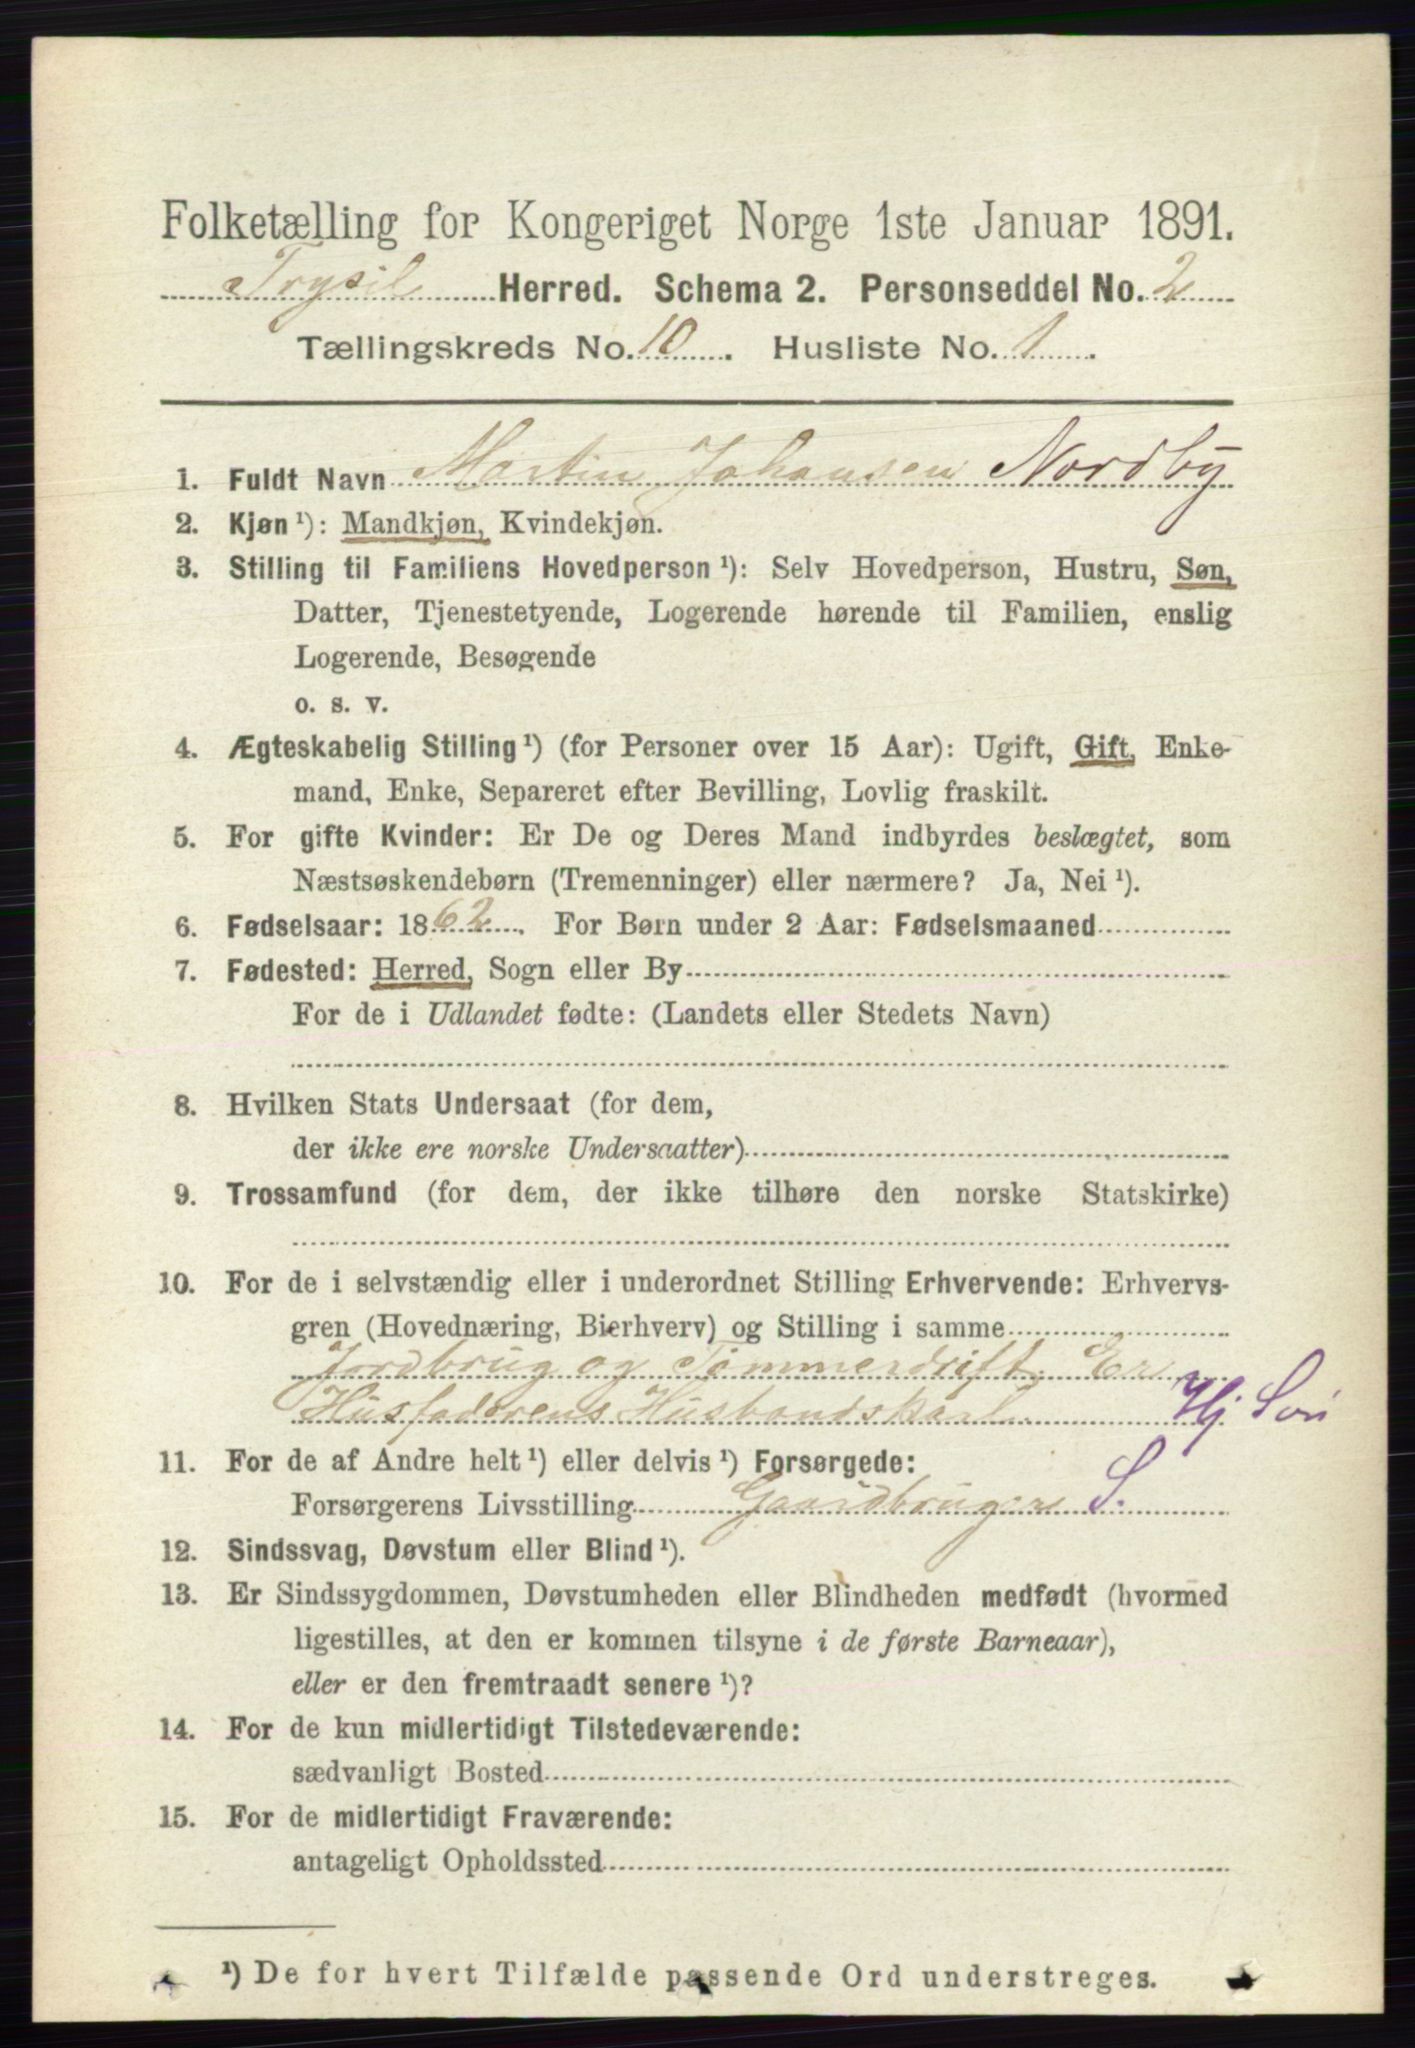 Folketælling for Kongeriget Norge 1ste Januar 1891.
Trysil Herred. Schema 2. Personseddel No. 2
Tællingskreds No. 10. Husliste No. 1.
1. Fuldt Navn Martin Johansen Nordby
2. Kjøn ¹): Mandkjøn, Kvindekjøn.
3. Stilling til Familiens Hovedperson ¹): Selv Hovedperson, Hustru, Søn,
Datter, Tjenestetyende, Logerende hørende til Familien, enslig
Logerende, Besøgende
o. s. v.
4. Ægteskabelig Stilling ¹) (for Personer over 15 Aar): Ugift, Gift, Enke-
mand, Enke, Separeret efter Bevilling, Lovlig fraskilt.
5. For gifte Kvinder: Er De og Deres Mand indbyrdes beslægtet, som
Næstsøskendebørn (Tremenninger) eller nærmere? Ja, Nei ¹).
6. Fødselsaar: 1862. For Børn under 2 Aar: Fødselsmaaned
7. Fødested: Herred, Sogn eller By
For de i Udlandet fødte: (Landets eller Stedets Navn)
8. Hvilken Stats Undersaat (for dem,
der ikke ere norske Undersaatter)
9. Trossamfund (for dem, der ikke tilhøre den norske Statskirke)
10. For de i selvstændig eller i underordnet Stilling Erhvervende: Erhvervs-
gren (Hovednæring, Bierhverv) og Stilling i samme
Jordbrug og Tømmerdrift. Er
Husfaderens Husbondskarl Hj Søn
11. For de af Andre helt ¹) eller delvis ¹) Forsørgede:
Forsørgerens Livsstilling Gaardbruger S.
12. Sindssvag, Døvstum eller Blind ¹).
13. Er Sindssygdommen, Døvstumheden eller Blindheden medfødt (hvormed
ligestilles, at den er kommen tilsyne i de første Barneaar),
eller er den fremtraadt senere ¹)?
14. For de kun midlertidigt Tilstedeværende:
sædvanligt Bosted
15. For de midlertidigt Fraværende:
antageligt Opholdssted
¹) De for hvert Tilfælde passende Ord understreges.